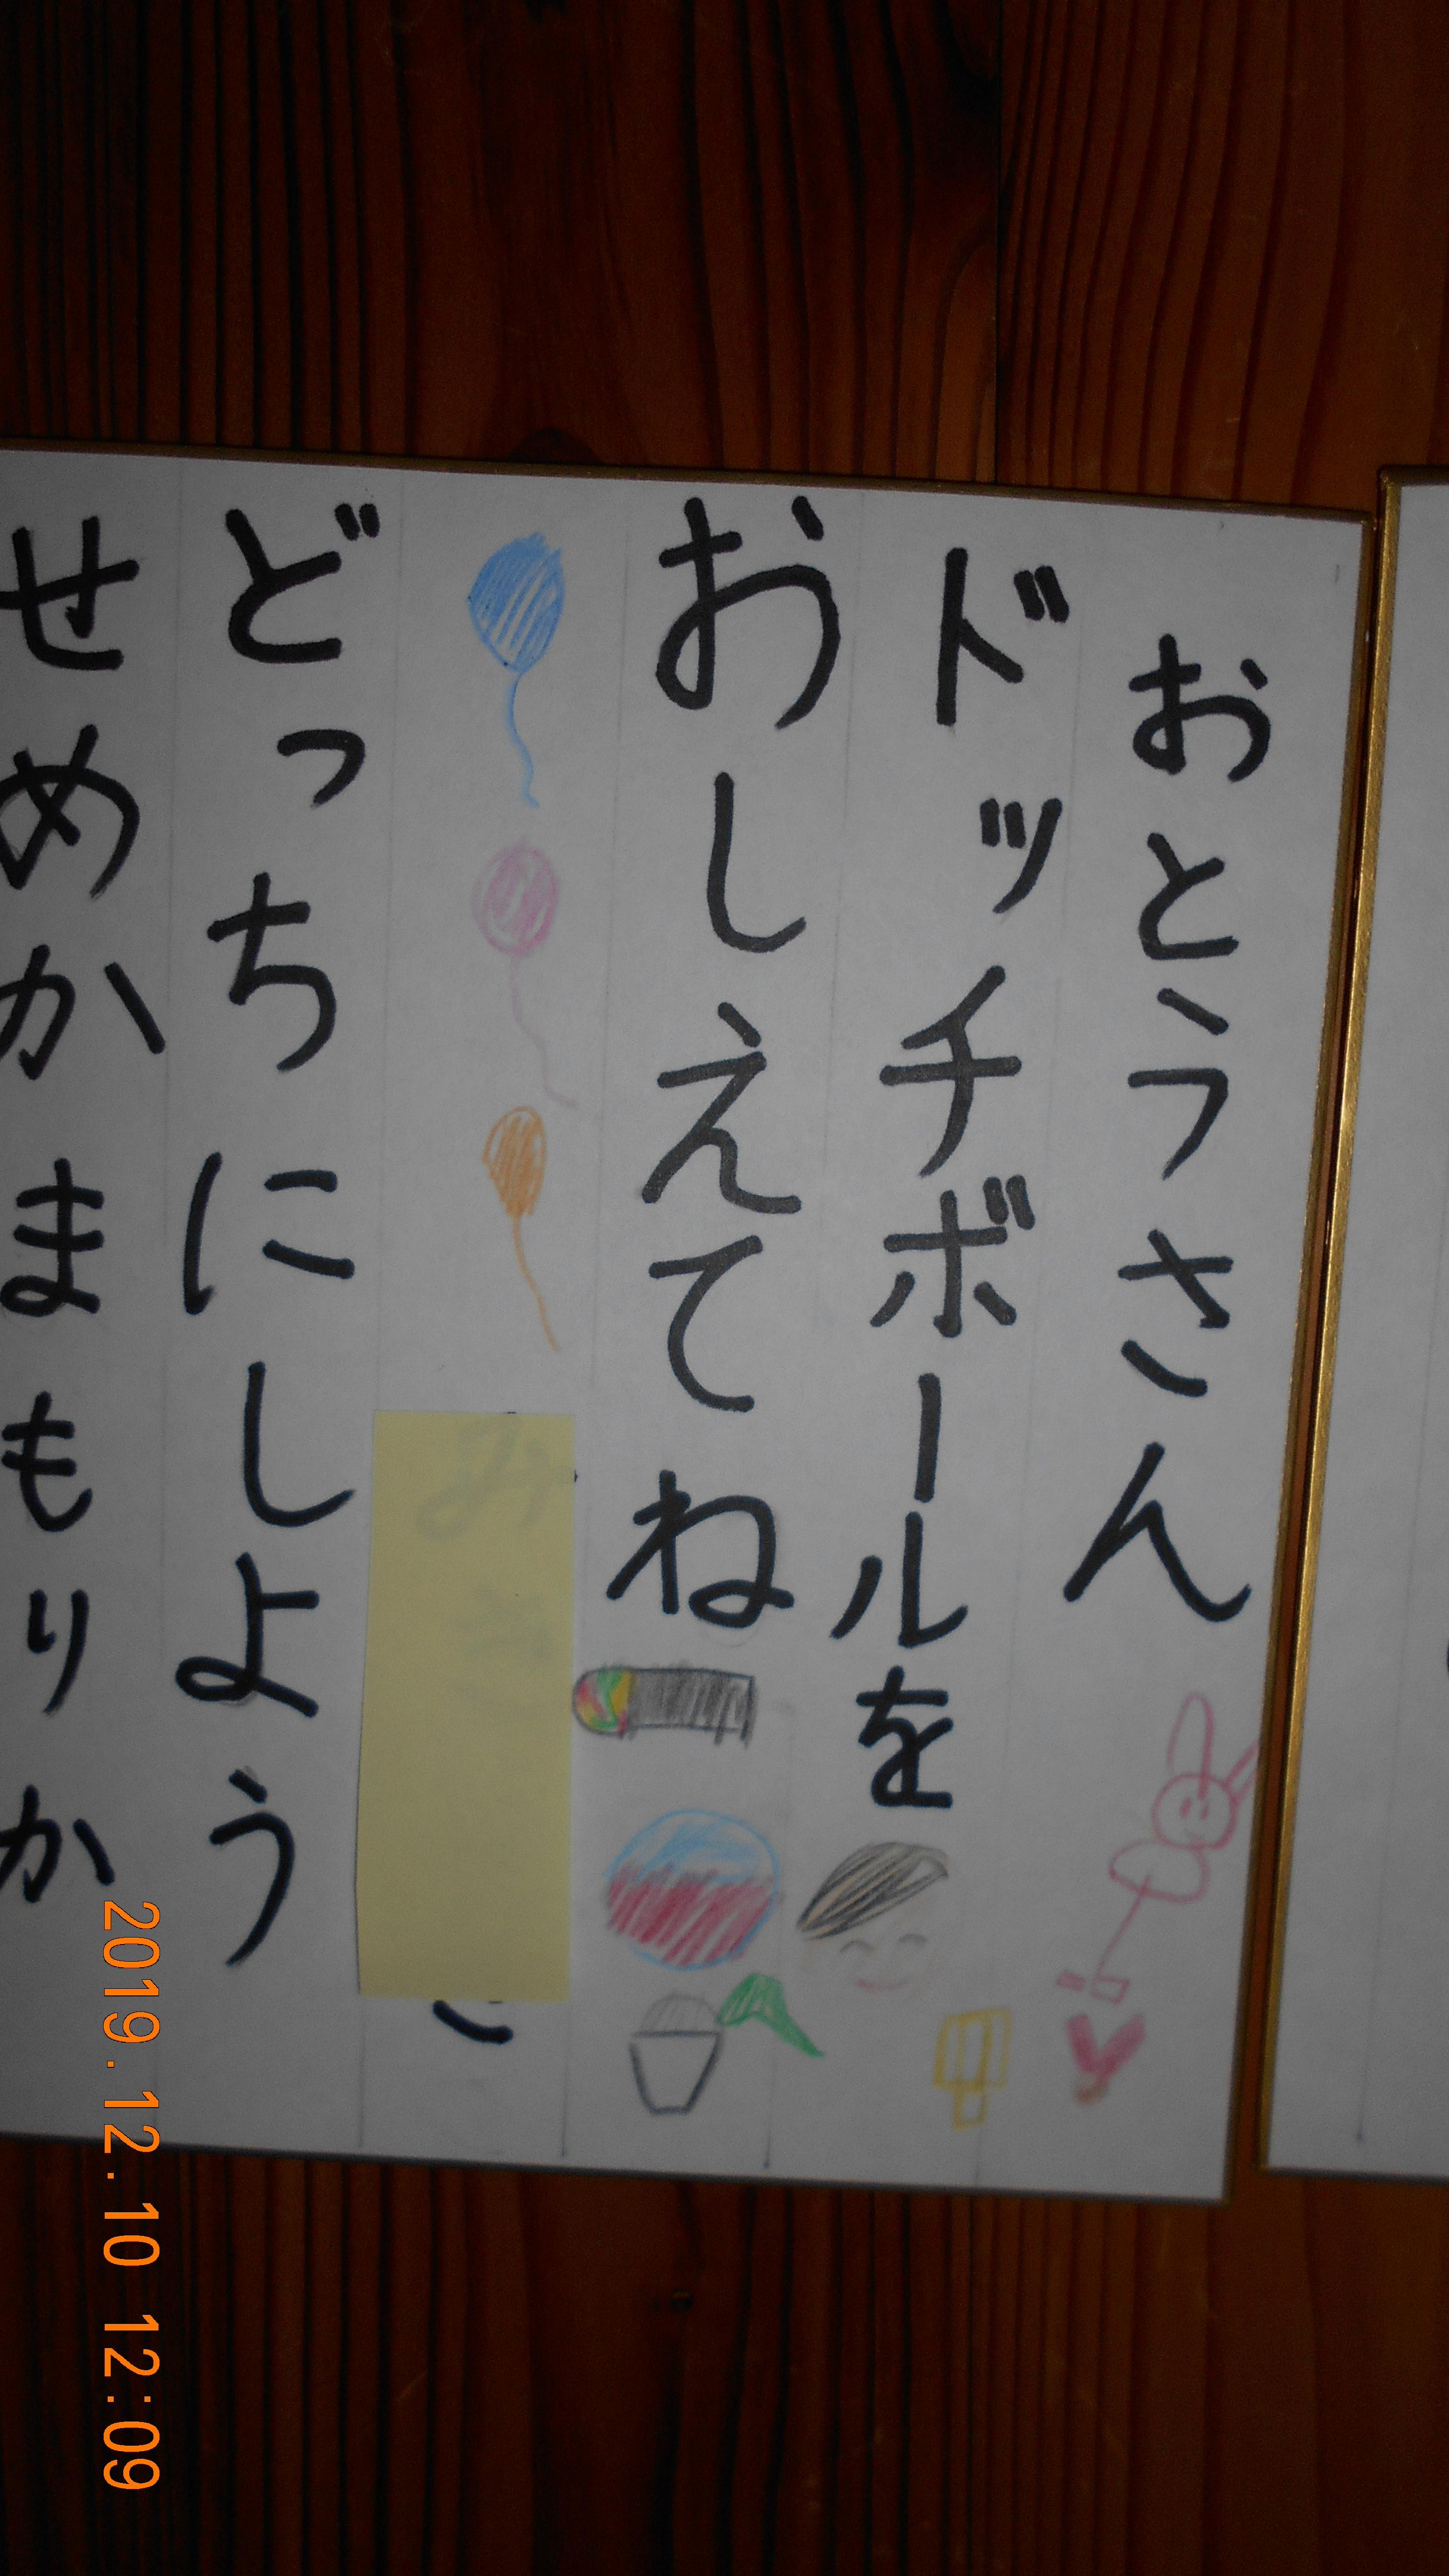 おとうさん
ドッチボールを
おしえてね
こ
どっちにしよう
せめかまもりか
2019.12.10 12:09